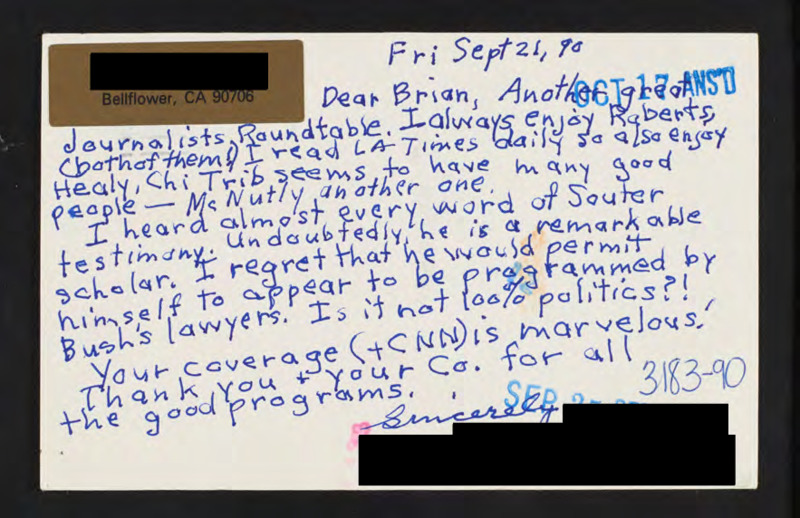 Bellflower, CA 90706
Fri Sept 21, 90
OCT 17 ANS'D
Dear Brian, Another great
Journalists Roundtable. I always enjoy Roberts,
(both of them). I read LA Times daily so also enjoy
Healy, Chi Trib seems to have many good
people — McNutly another one.
I heard almost every word of Souter
testimony. Undoubtedly, he is a remarkable
scholar. I regret that he would permit
himself to appear to be programmed by
Bush's lawyers. Is it not 100% politics?!
Your coverage (+CNN) is marvelous!
Thank you + your Co. for all
the good programs.
3183-90
SEP
Sincerely